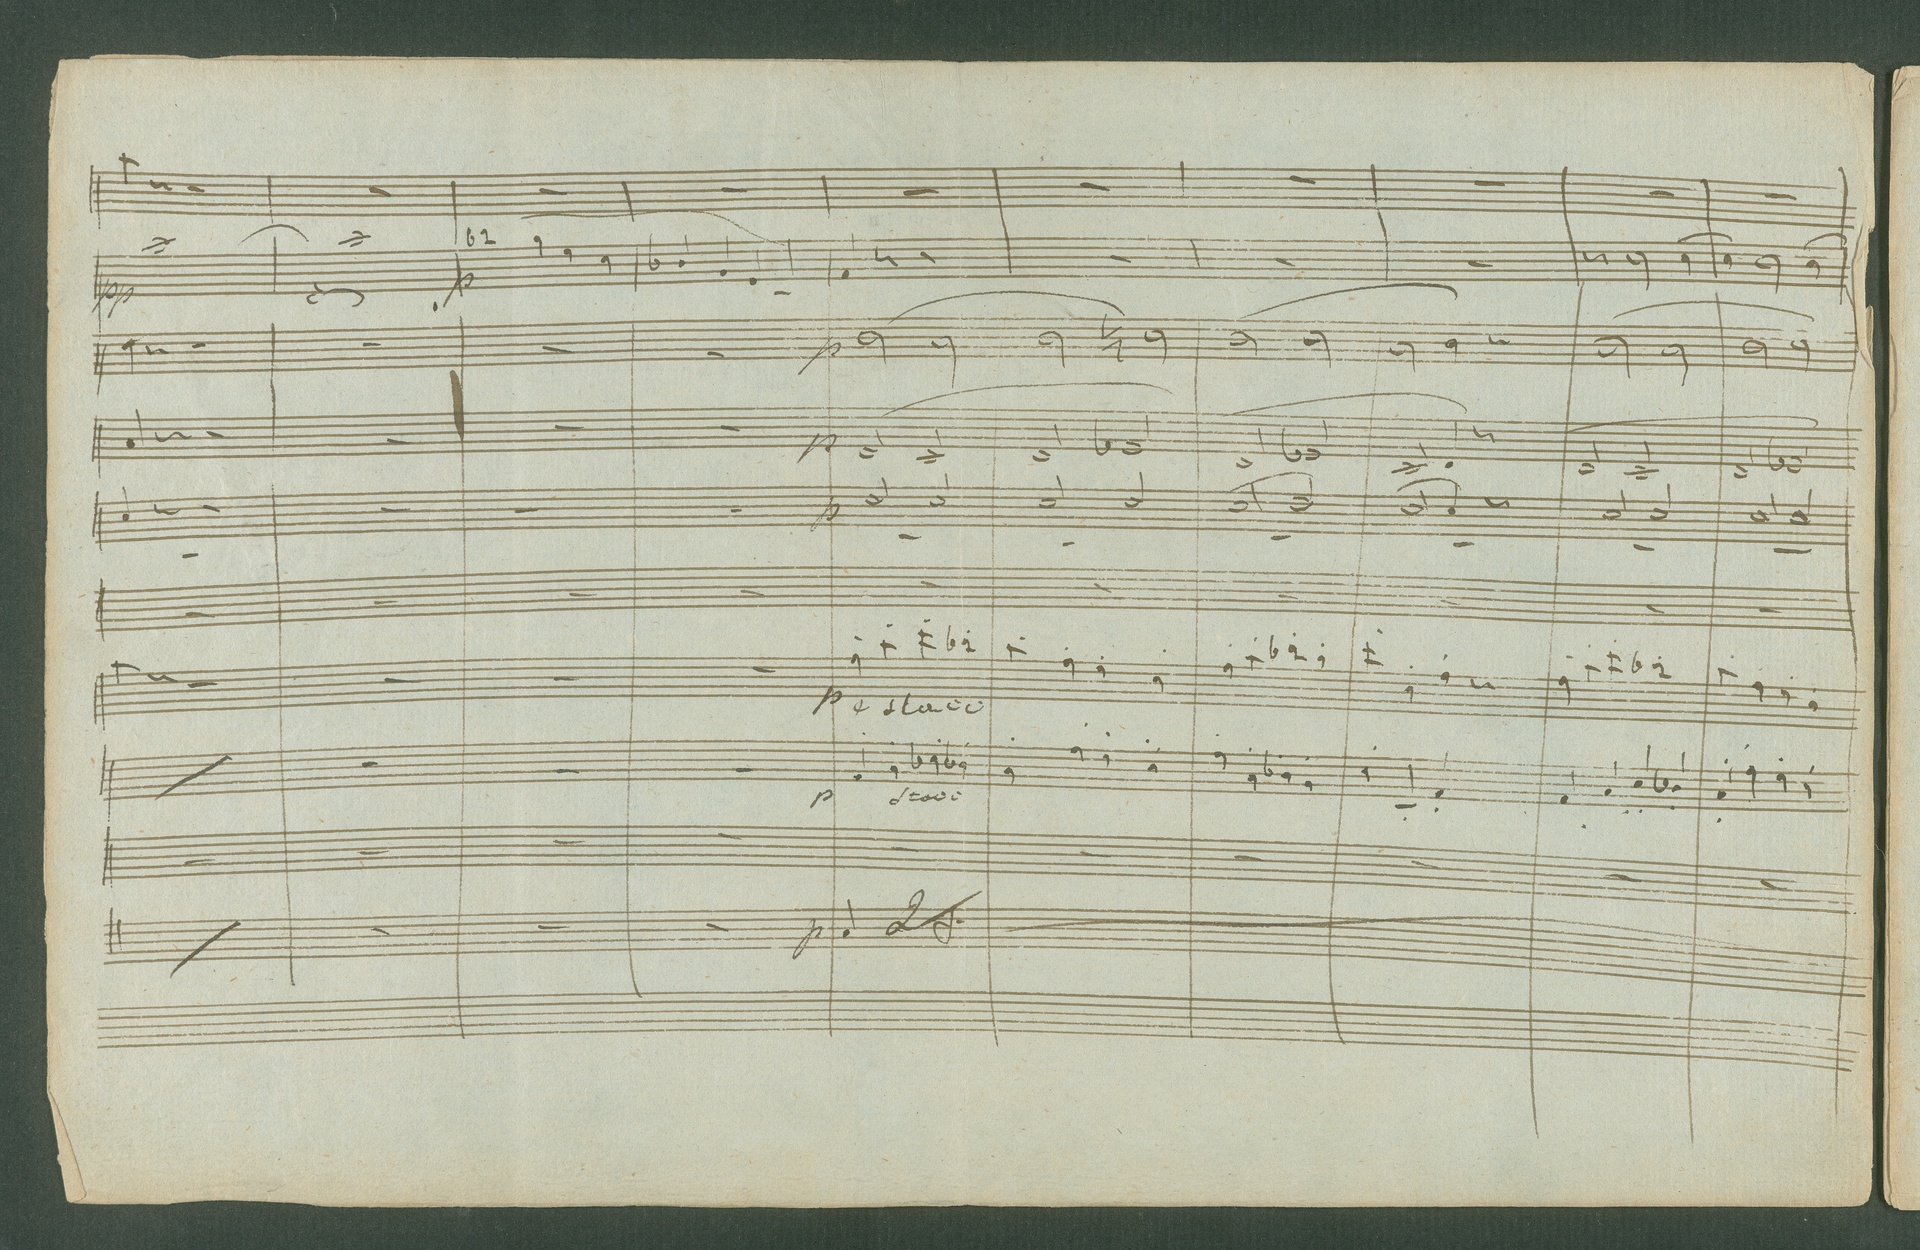 pp
p
p
p
p
p e stacc
p stacc
p